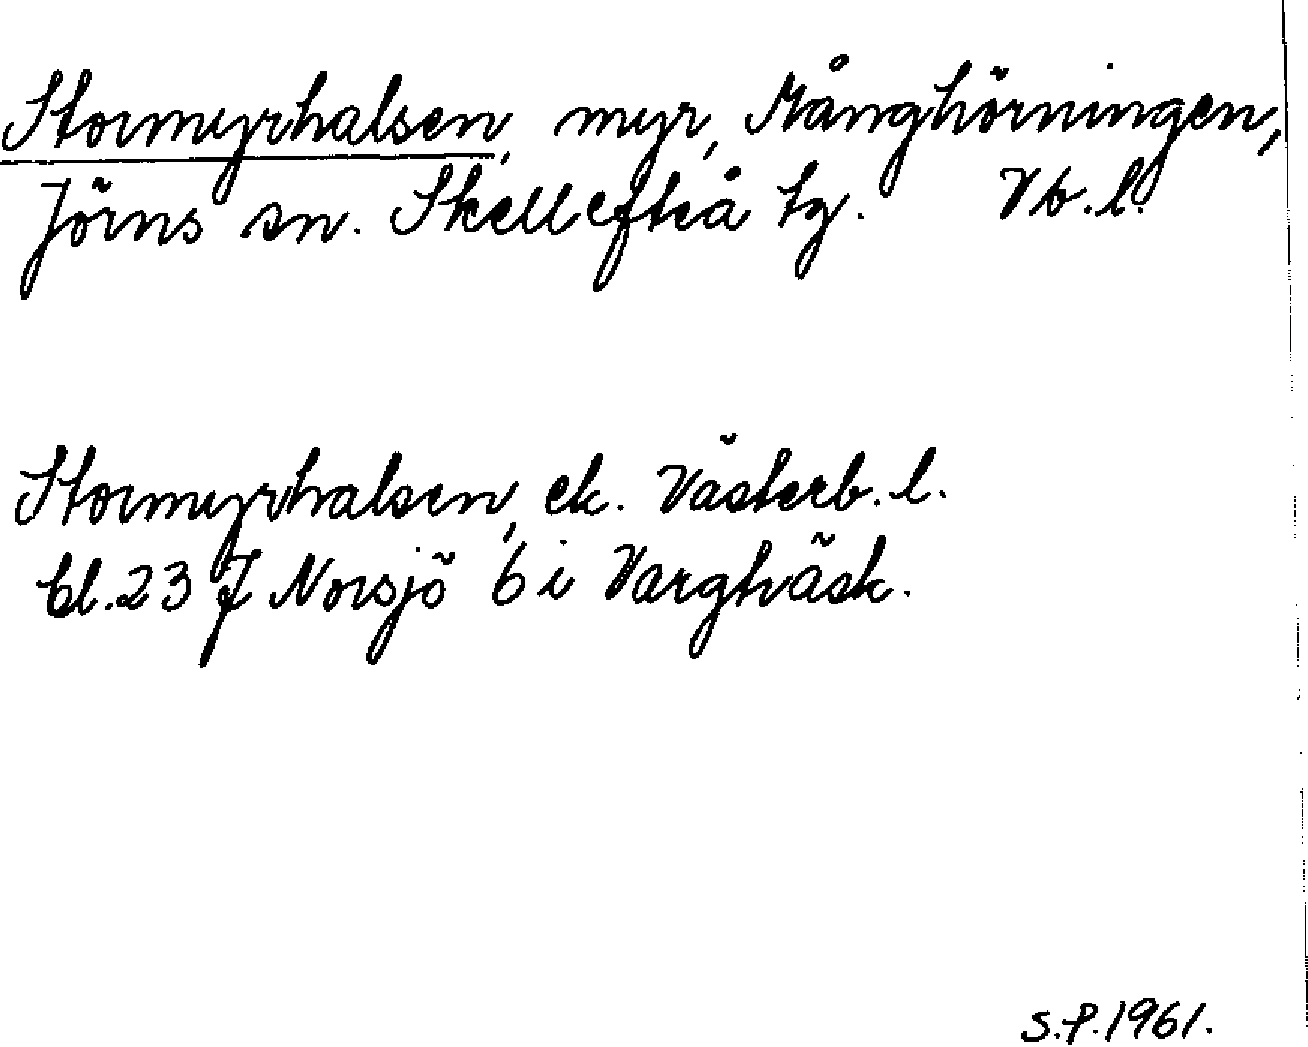 Stormyrhalsen, myr, Månghörningen,
Jörns sn. Skellefteå tg. Vb.l.
Stormyrhalsen, ek. Västerb.l.
bl.23 J Norsjö 6 i Vargträsk.
S.P.1961.